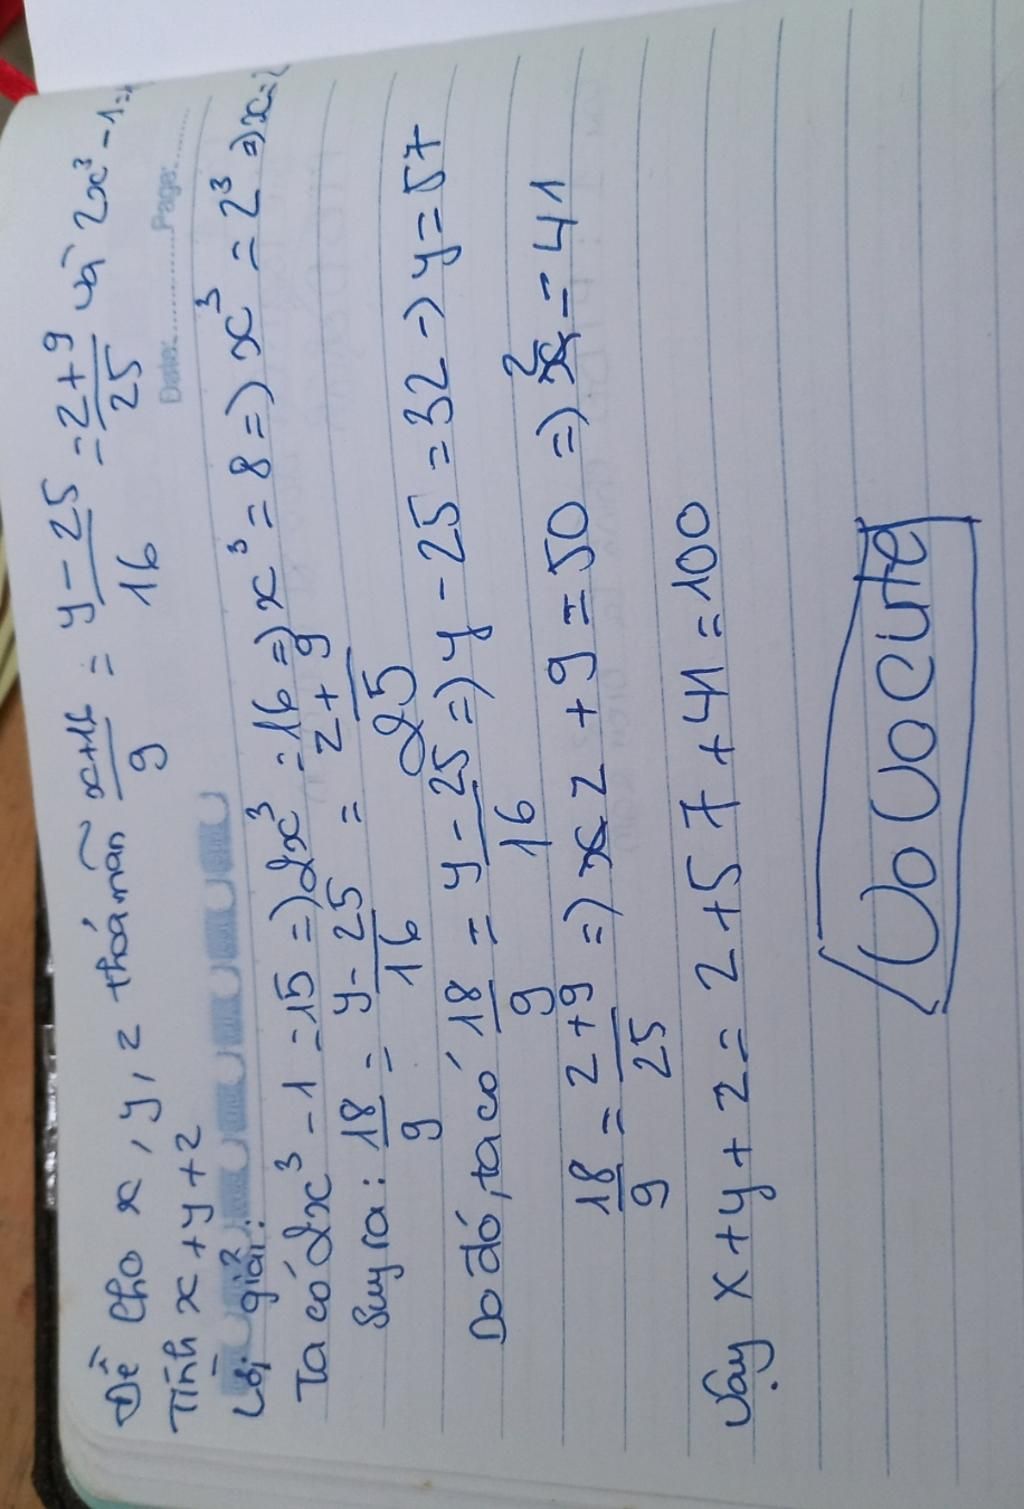 Đề Cho x, y, z thoả mãn (x+16)/9 = (y-25)/16 = (z+9)/25 và 2x³ - 1 =
Tính x+y+z
Date: Page:
Lời giải:
Ta có 2x³ - 1 = 15 => 2x³ = 16 => x³ = 8 => x³ = 2³ => x = 2
Suy ra: 18/9 = (y-25)/16 = (z+9)/25
Do đó, ta có 18/9 = (y-25)/16 => y-25 = 32 => y = 57
18/9 = (z+9)/25 => z+9 = 50 => z = 41
Vậy x+y+z = 2+57+41 = 100
VoVocute